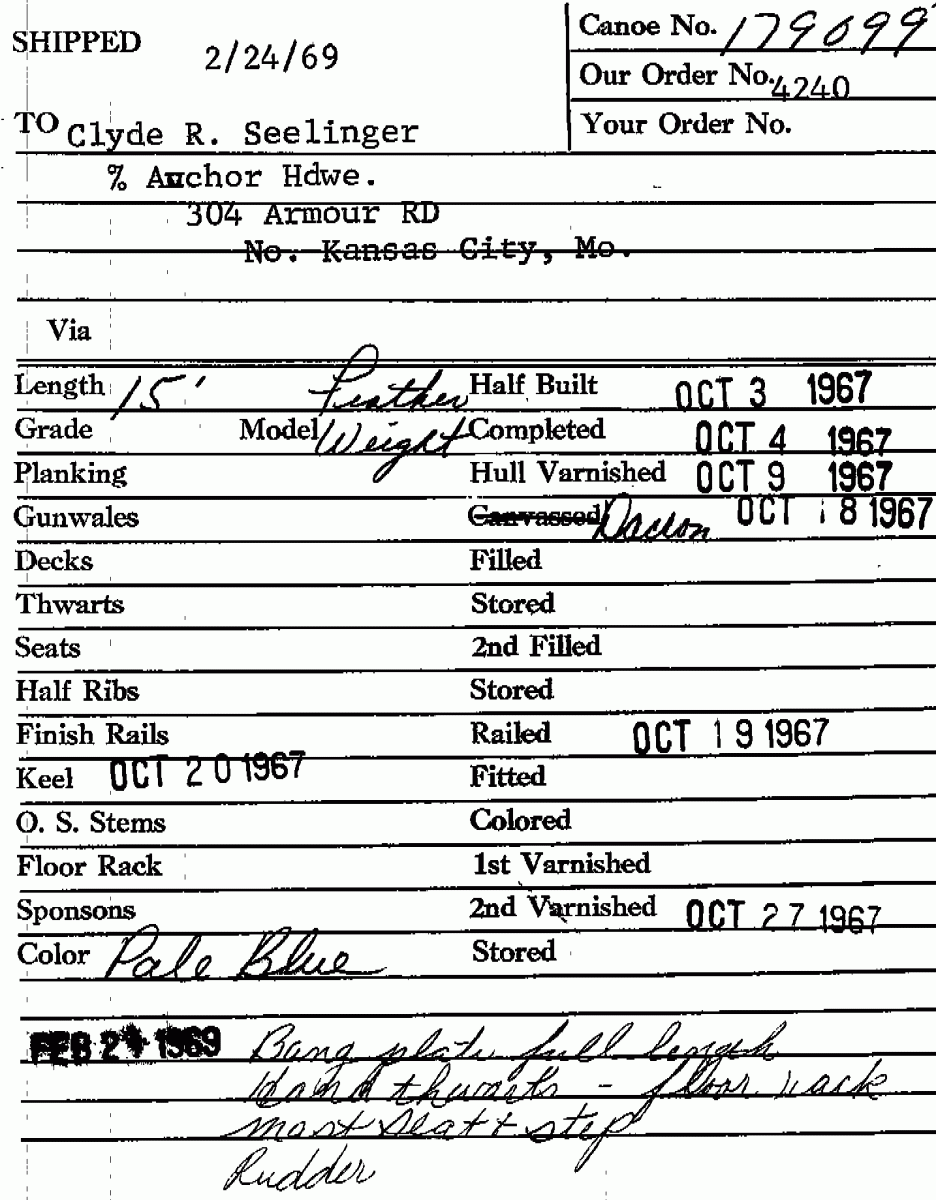 SHIPPED 2/24/69 Canoe No. 179099
Our Order No. 4240
TO Clyde R. Seelinger Your Order No.
% Anchor Hdwe.
304 Armour RD
No. Kansas City, Mo.
Via
Length 15' Feather Half Built OCT 3 1967
Grade Model Weight Completed OCT 4 1967
Planking Hull Varnished OCT 9 1967
Gunwales Canvassed Dacron OCT 18 1967
Decks Filled
Thwarts Stored
Seats 2nd Filled
Half Ribs Stored
Finish Rails Railed OCT 19 1967
Keel OCT 20 1967 Fitted
O. S. Stems Colored
Floor Rack 1st Varnished
Sponsons 2nd Varnished OCT 27 1967
Color Pale Blue Stored
FEB 24 1969 Bang plate full length
Hand thwarts - floor rack
mast seat & step
Rudder